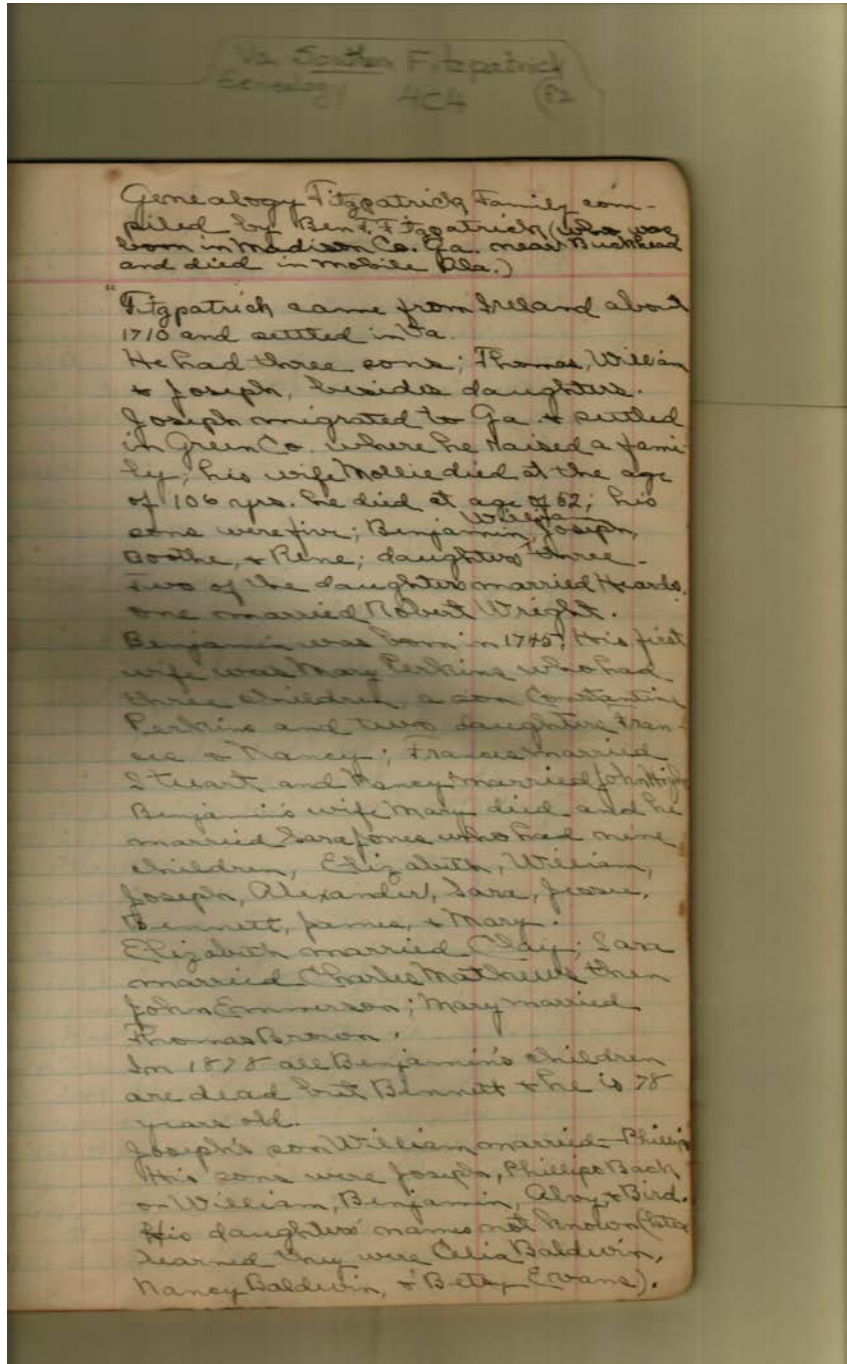 Va. Southern Fitzpatrick
Genealogy 4C4 82
Genealogy Fitzpatrick Family com-
piled by Ben F. Fitzpatrick (who was
born in Madison Co. Ga. near Buckhead
and died in Mobile Ala.)
"Fitzpatrick came from Ireland about
1710 and settled in Va.
He had three sons; Thomas, William
& Joseph, besides daughters.
Joseph migrated to Ga. & settled
in Green Co. where he raised a fami-
ly; his wife Mollie died at the age
of 106 yrs. he died at age of 62; his
William
sons were five; Benjamin, Joseph,
Boothe, & Rene; daughters three-
two of the daughters married Heards.
one married Robert Wright.
Benjamin was born in 1745; His first
wife was Mary Perkins who had
three children, a son Constantine
Perkins and two daughters Fran-
ces & Nancy; Frances married
Stuart and Nancy married John
Benjamin's wife Mary died and he
married Sara Jones who had nine
children, Elizabeth, William,
Joseph, Alexander, Sara, Jessie,
Bennett, James, & Mary.
Elizabeth married Clay; Sara
married Charles Mathews then
John Emmerson; Mary married
Thomas Brown.
In 1878 all Benjamin's children
are dead but Bennett & he is 78
years old.
Joseph's son William married - Phillips
His sons were Joseph, Phillips Back
or William, Benjamin, Alvy, & Bird.
His daughters' names not known (later
learned they were Celia Baldwin,
Nancy Baldwin, & Betsy Evans).